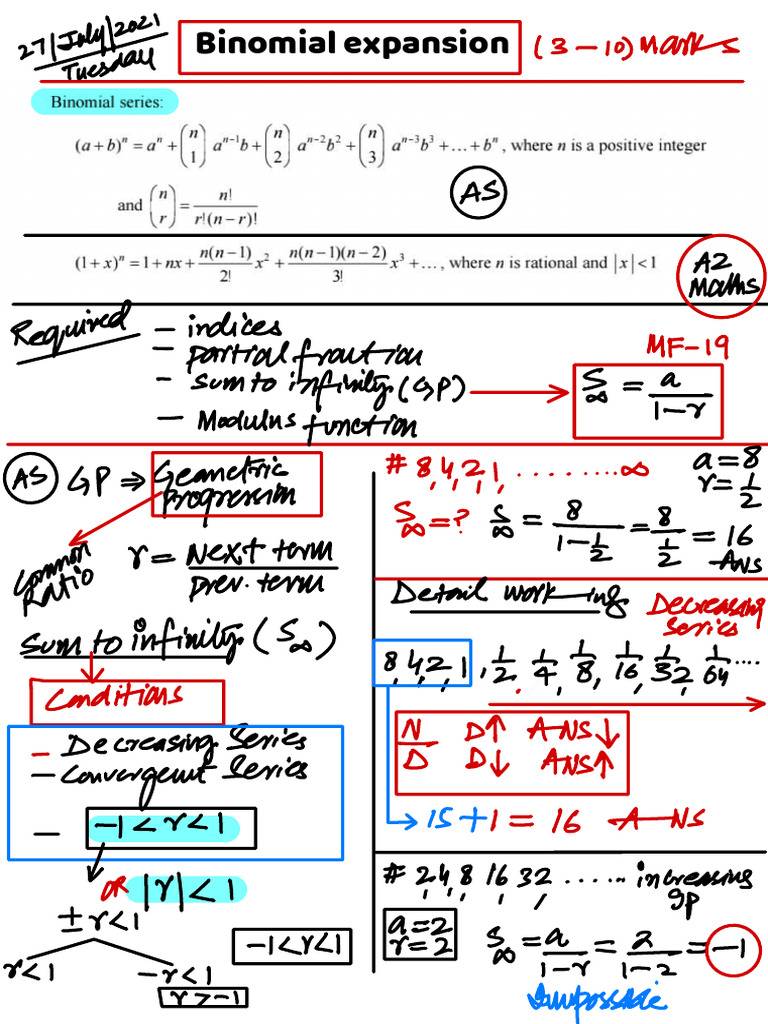 27/July/2021
Tuesday
Binomial expansion (3-10) Marks
Binomial series:
(a+b)ⁿ = aⁿ + (n 1) aⁿ⁻¹b + (n 2) aⁿ⁻²b² + (n 3) aⁿ⁻³b³ + … + bⁿ, where n is a positive integer
and (n r) = n!/(r!(n−r)!)
AS
(1+x)ⁿ = 1 + nx + n(n−1)/2! x² + n(n−1)(n−2)/3! x³ + …, where n is rational and |x| < 1
A2
Maths
Required
- indices
- partial fraction
- Sum to infinity (GP)
- Modulus function
MF-19
S∞ = a/(1-r)
AS GP ⇒ Geometric
Progression
Common
Ratio
r = Next term/prev. term
Sum to infinity (S∞)
Conditions
- Decreasing Series
- Convergent Series
- -1 < r < 1
OR |r| < 1
± r < 1
r < 1
-r < 1
r > -1
-1 < r < 1
# 8, 4, 2, 1, ........ ∞
a = 8
r = 1/2
S∞ = ? S∞ = 8/(1-1/2) = 8/(1/2) = 16
Ans
Detail working
Decreasing
series
8, 4, 2, 1, 1/2, 1/4, 1/8, 1/16, 1/32, 1/64 ....
N/D D↑ ANS↓
D↓ ANS↑
→ 15 + 1 = 16 ANS
# 2, 4, 8, 16, 32 ...... increasing
gp
a = 2
r = 2
S∞ = a/(1-r) = 2/(1-2) = -1
Impossible